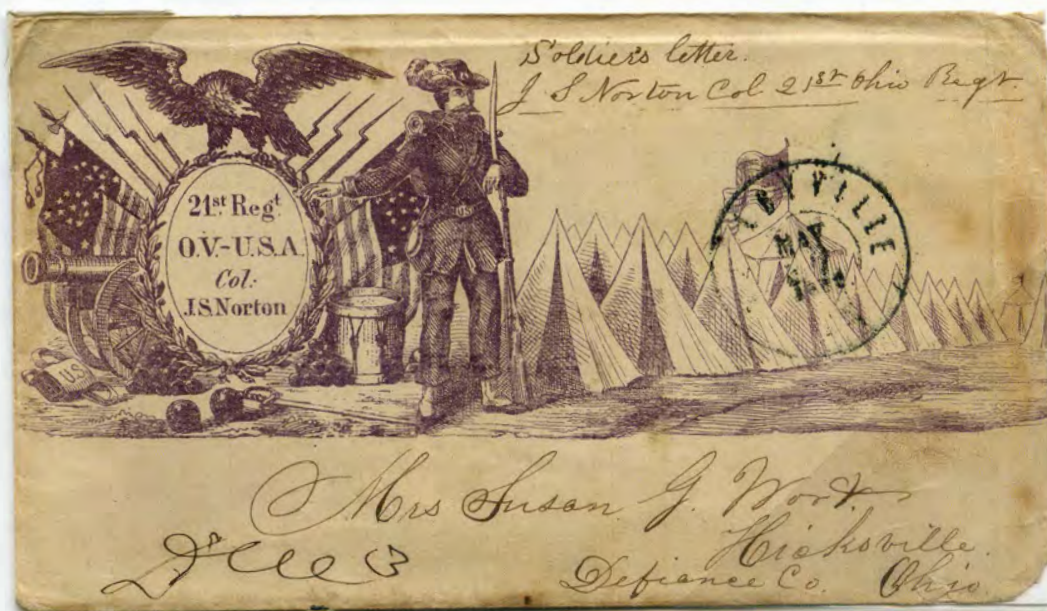 Soldier's letter.
J S Norton Col 21st Ohio Regt.
21st Regt
O.V.-U.S.A.
Col:
J.S Norton
US
MAY
Mrs Susan G.
Hicksville.
Defiance Co. Ohio
Due 3